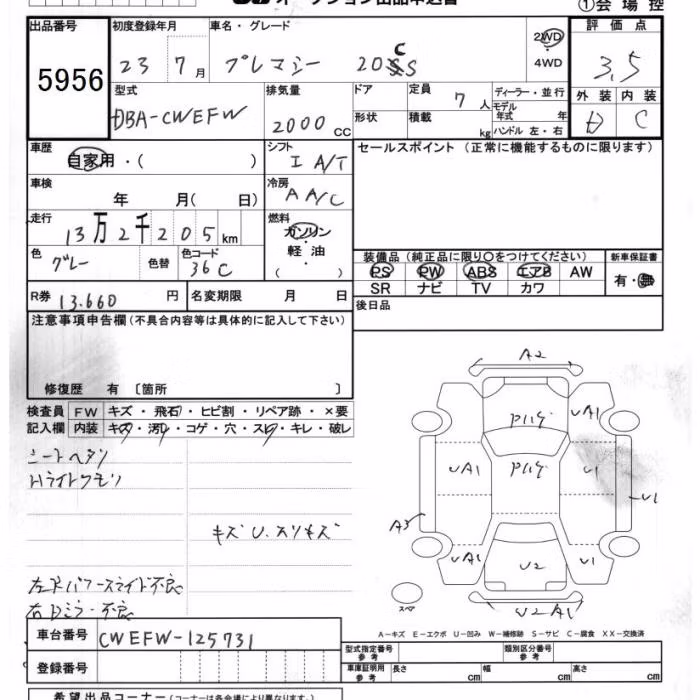 オークション出品申込書
①会場控
出品番号 初度登録年月 車名・グレード 2WD ・ 4WD 評価点
5956 23 7月 プレマシー 20CS 3.5
型式 排気量 ドア 定員 7人 ディーラー・並行 外装 内装
DBA-CWEFW 2000CC 形状 積載 kg モデル年式 年 D C
ハンドル 左・右
車歴 シフト セールスポイント (正常に機能するものに限ります)
自家用・( ) I A/T
車検 冷房
年 月( 日) A A/C
走行 燃料
13万2千205km ガソリン・軽油・( )
色 色替 色コード 装備品 (純正品に限り○をつけてください) 新車保証書
グレー 36C PS PW ABS エアB AW 有・無
SR ナビ TV カワ
R券 13.660円 名変期限 月 日 後日品
注意事項申告欄(不具合内容等は具体的に記入して下さい)
修復歴 有 〔箇所 〕
検査員 FW キズ・飛石・ヒビ割・リペア跡・×要
記入欄 内装 キズ・汚レ・コゲ・穴・スレ・キレ・破レ
シートヘタリ
Hライトクモリ
キズ U. スリキズ
左ドパワースライド不良
右Dミラー不良
A2
UA1
UA1 U1
U1
A3
UA1 U2 U1
スペア U2 A1
A-キズ E-エクボ U-凹み W-補修跡 S-サビ C-腐食 XX-交換済
車台番号 CWEFW-125731
登録番号
型式指定番号 参考 類別区分番号 参考
車庫証明用 参考 長さ cm 幅 cm 高さ cm
希望出品コーナー(コーナーは各会場により異なります。)